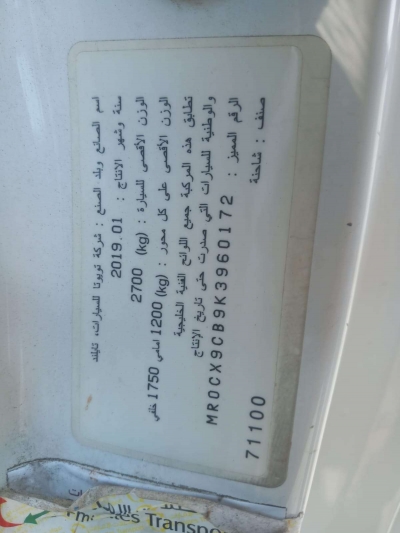 اسم الصانع وبلد الصنع : شركة تويوتا للسيارات، تايلاند
سنة وشهر الإنتاج : 2019.01
الوزن الأقصى للسيارة : (kg) 2700
الوزن الأقصى على كل محور : (kg) 1200 امامي 1750 خلفي
تطابق هذه المركبة جميع اللوائح الفنية الخليجية
والوطنية للسيارات التي صدرت حتى تاريخ الإنتاج
الرقم المميز : MR0CX9CB9K3960172
صنف : شاحنة
71100
Transpor